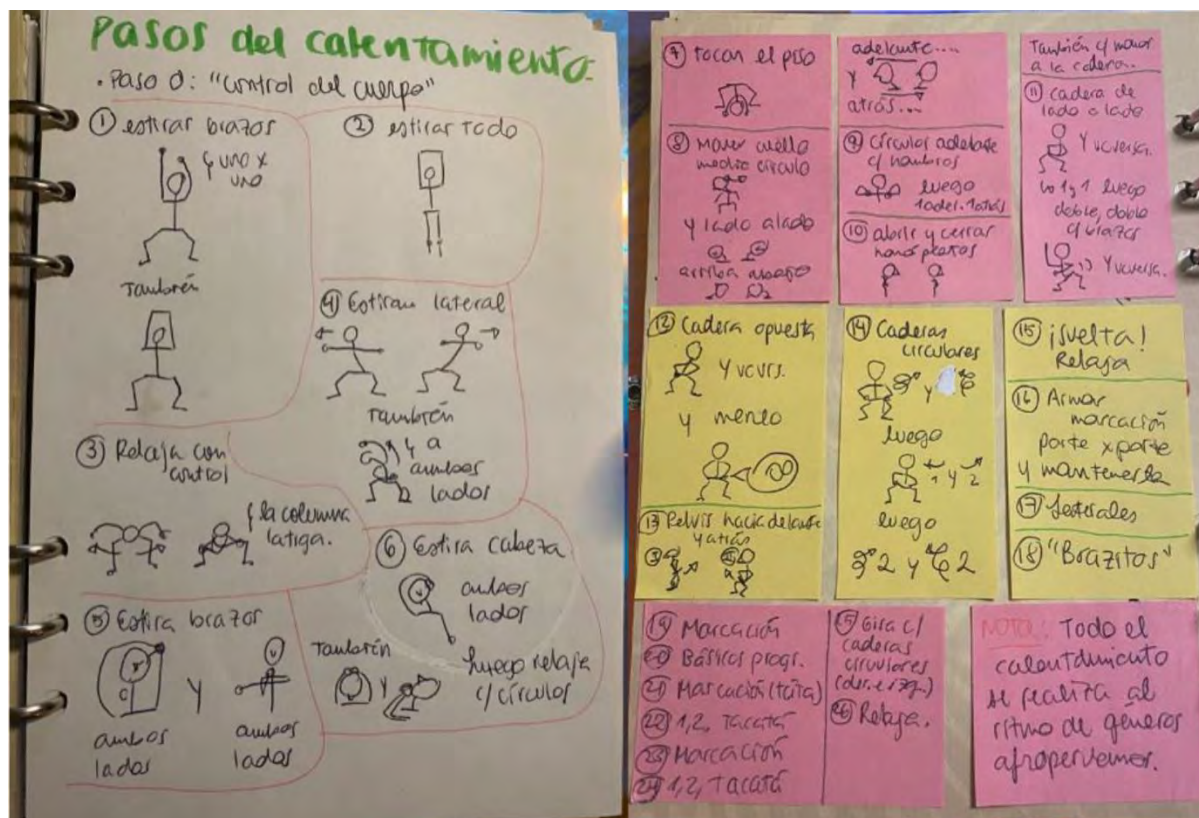 Pasos del calentamiento.
· Paso 0: "control del cuerpo"
① estirar brazos
uno x
uno
También
② estirar todo
③ Relaja con
control
la columna
latiga.
④ Estiran lateral
También
a
ambos
lados
⑤ Estira brazos
y
ambos
lados
ambos
lados
⑥ Estira cabeza
ambos
lados
También
y
luego relaja
c/ círculos
⑦ tocan el piso
⑧ Mover cuello
medio círculo
y lado a lado
arriba abajo
adelante....
y
atrás...
⑨ Círculos adelante
c/ hombros
luego
1 ader. 1 atrás
⑩ abrir y cerrar
También c/ manos
a la cadera..
⑪ cadera de
lado a lado
y viceversa.
1 y 1 luego
doble, doble
c/ brazos
y viceversa.
⑫ Cadera opuesta
y vcvrs.
y meneo
⑬ Pelvis hacia delante
y atrás
⑭ Caderas
circulares
y
luego
1 y 2
luego
2 y 2
⑮ ¡suelta!
Relaja
⑯ Armar
marcación
parte x parte
y mantenerla
⑰ Laterales
⑱ "Brazitos"
⑲ Marcación
⑳ Básicos progr.
㉑ Marcación
㉒ 1, 2, Tacatá
㉓ Marcación
㉔ 1, 2, Tacatá
Gira c/
caderas
circulares
(der. e izq.)
㉖ Relaja.
NOTA: Todo el
calentamiento
se realiza al
ritmo de géneros
afroperuanos.